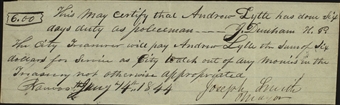 $6.00 This May certify that Andrew Lytle has done Six
days duty as policeman — J. Dunham H. P.
The City Treasurer will pay Andrew Lytle the Sum of Six
dollars for Service as City Watch out of any monies in the
Treasury not otherwise appropriated
Nauvoo 14th 1844 Joseph Smith
Mayor